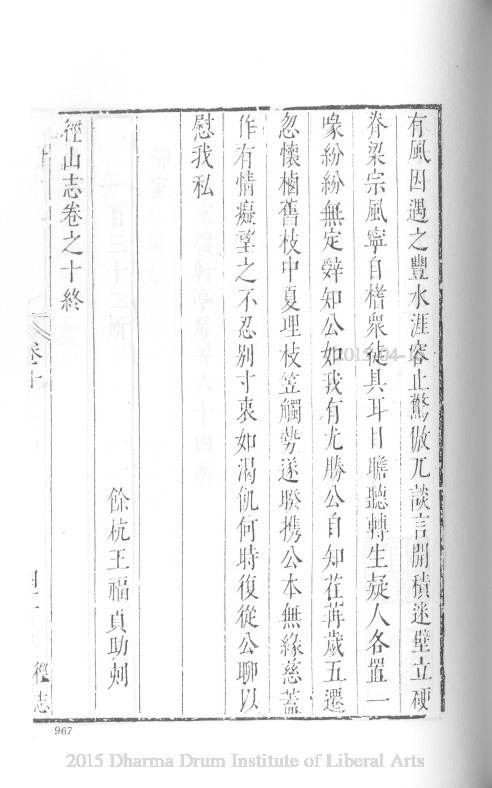 有風因遇之豐水涯容止驚傲兀談言開積迷壁立硬
脊梁宗風寧自楷衆徒具耳目瞻聽轉生疑人各置一
喙紛紛無定辭知公如我有尤勝公自知荏苒歲五遷
忽懷樠舊枝中夏理枝笠觸勢遂暌攜公本無緣慈蓋
作有情癡望之不忍别寸衷如渴飢何時復從公聊以
慰我私
餘杭王福貞助刻
徑山志卷之十終
卷十
徑志
967
2015-04-1
2015 Dharma Drum Institute of Liberal Arts